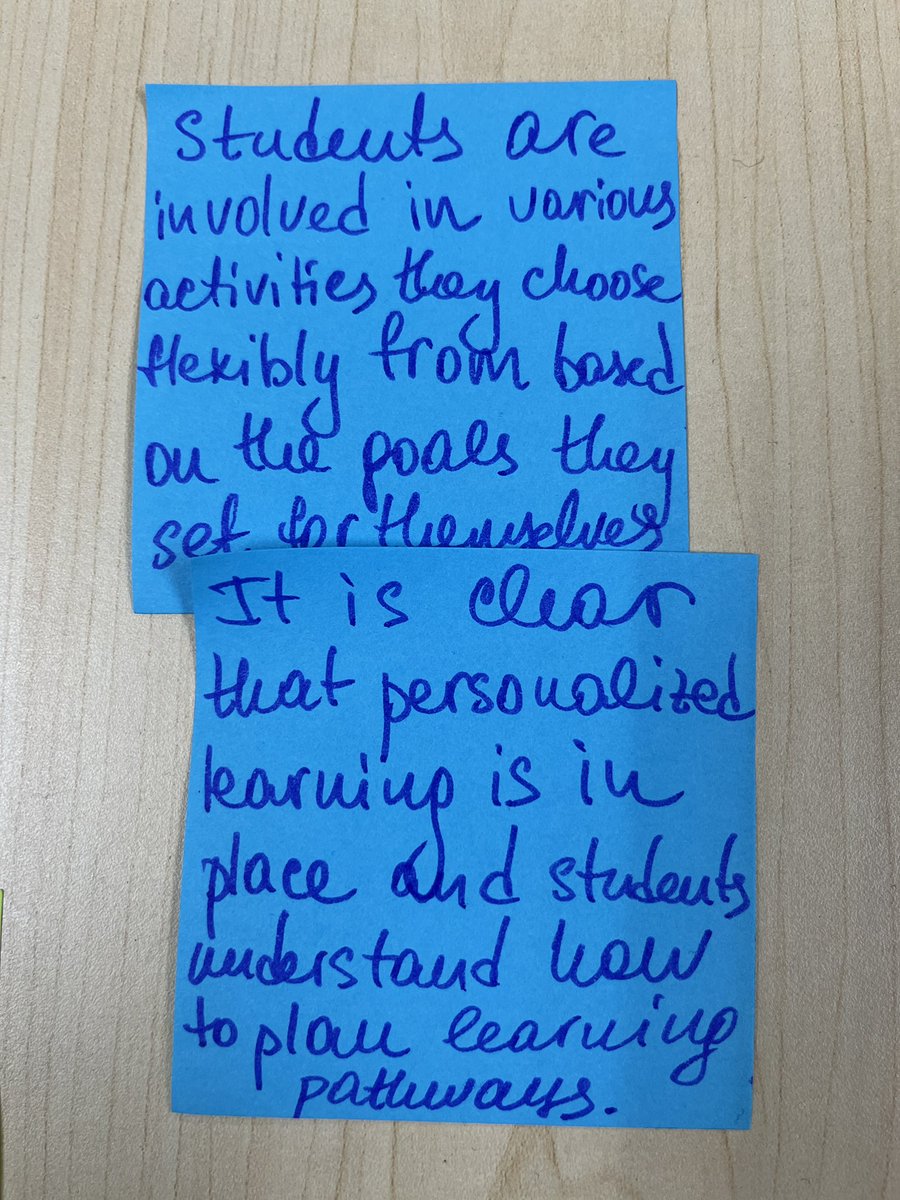 Students are
involved in various
activities they choose
flexibly from based
on the goals they
set for themselves
It is clear
that personalized
learning is in
place and students
understand how
to plan learning
pathways.